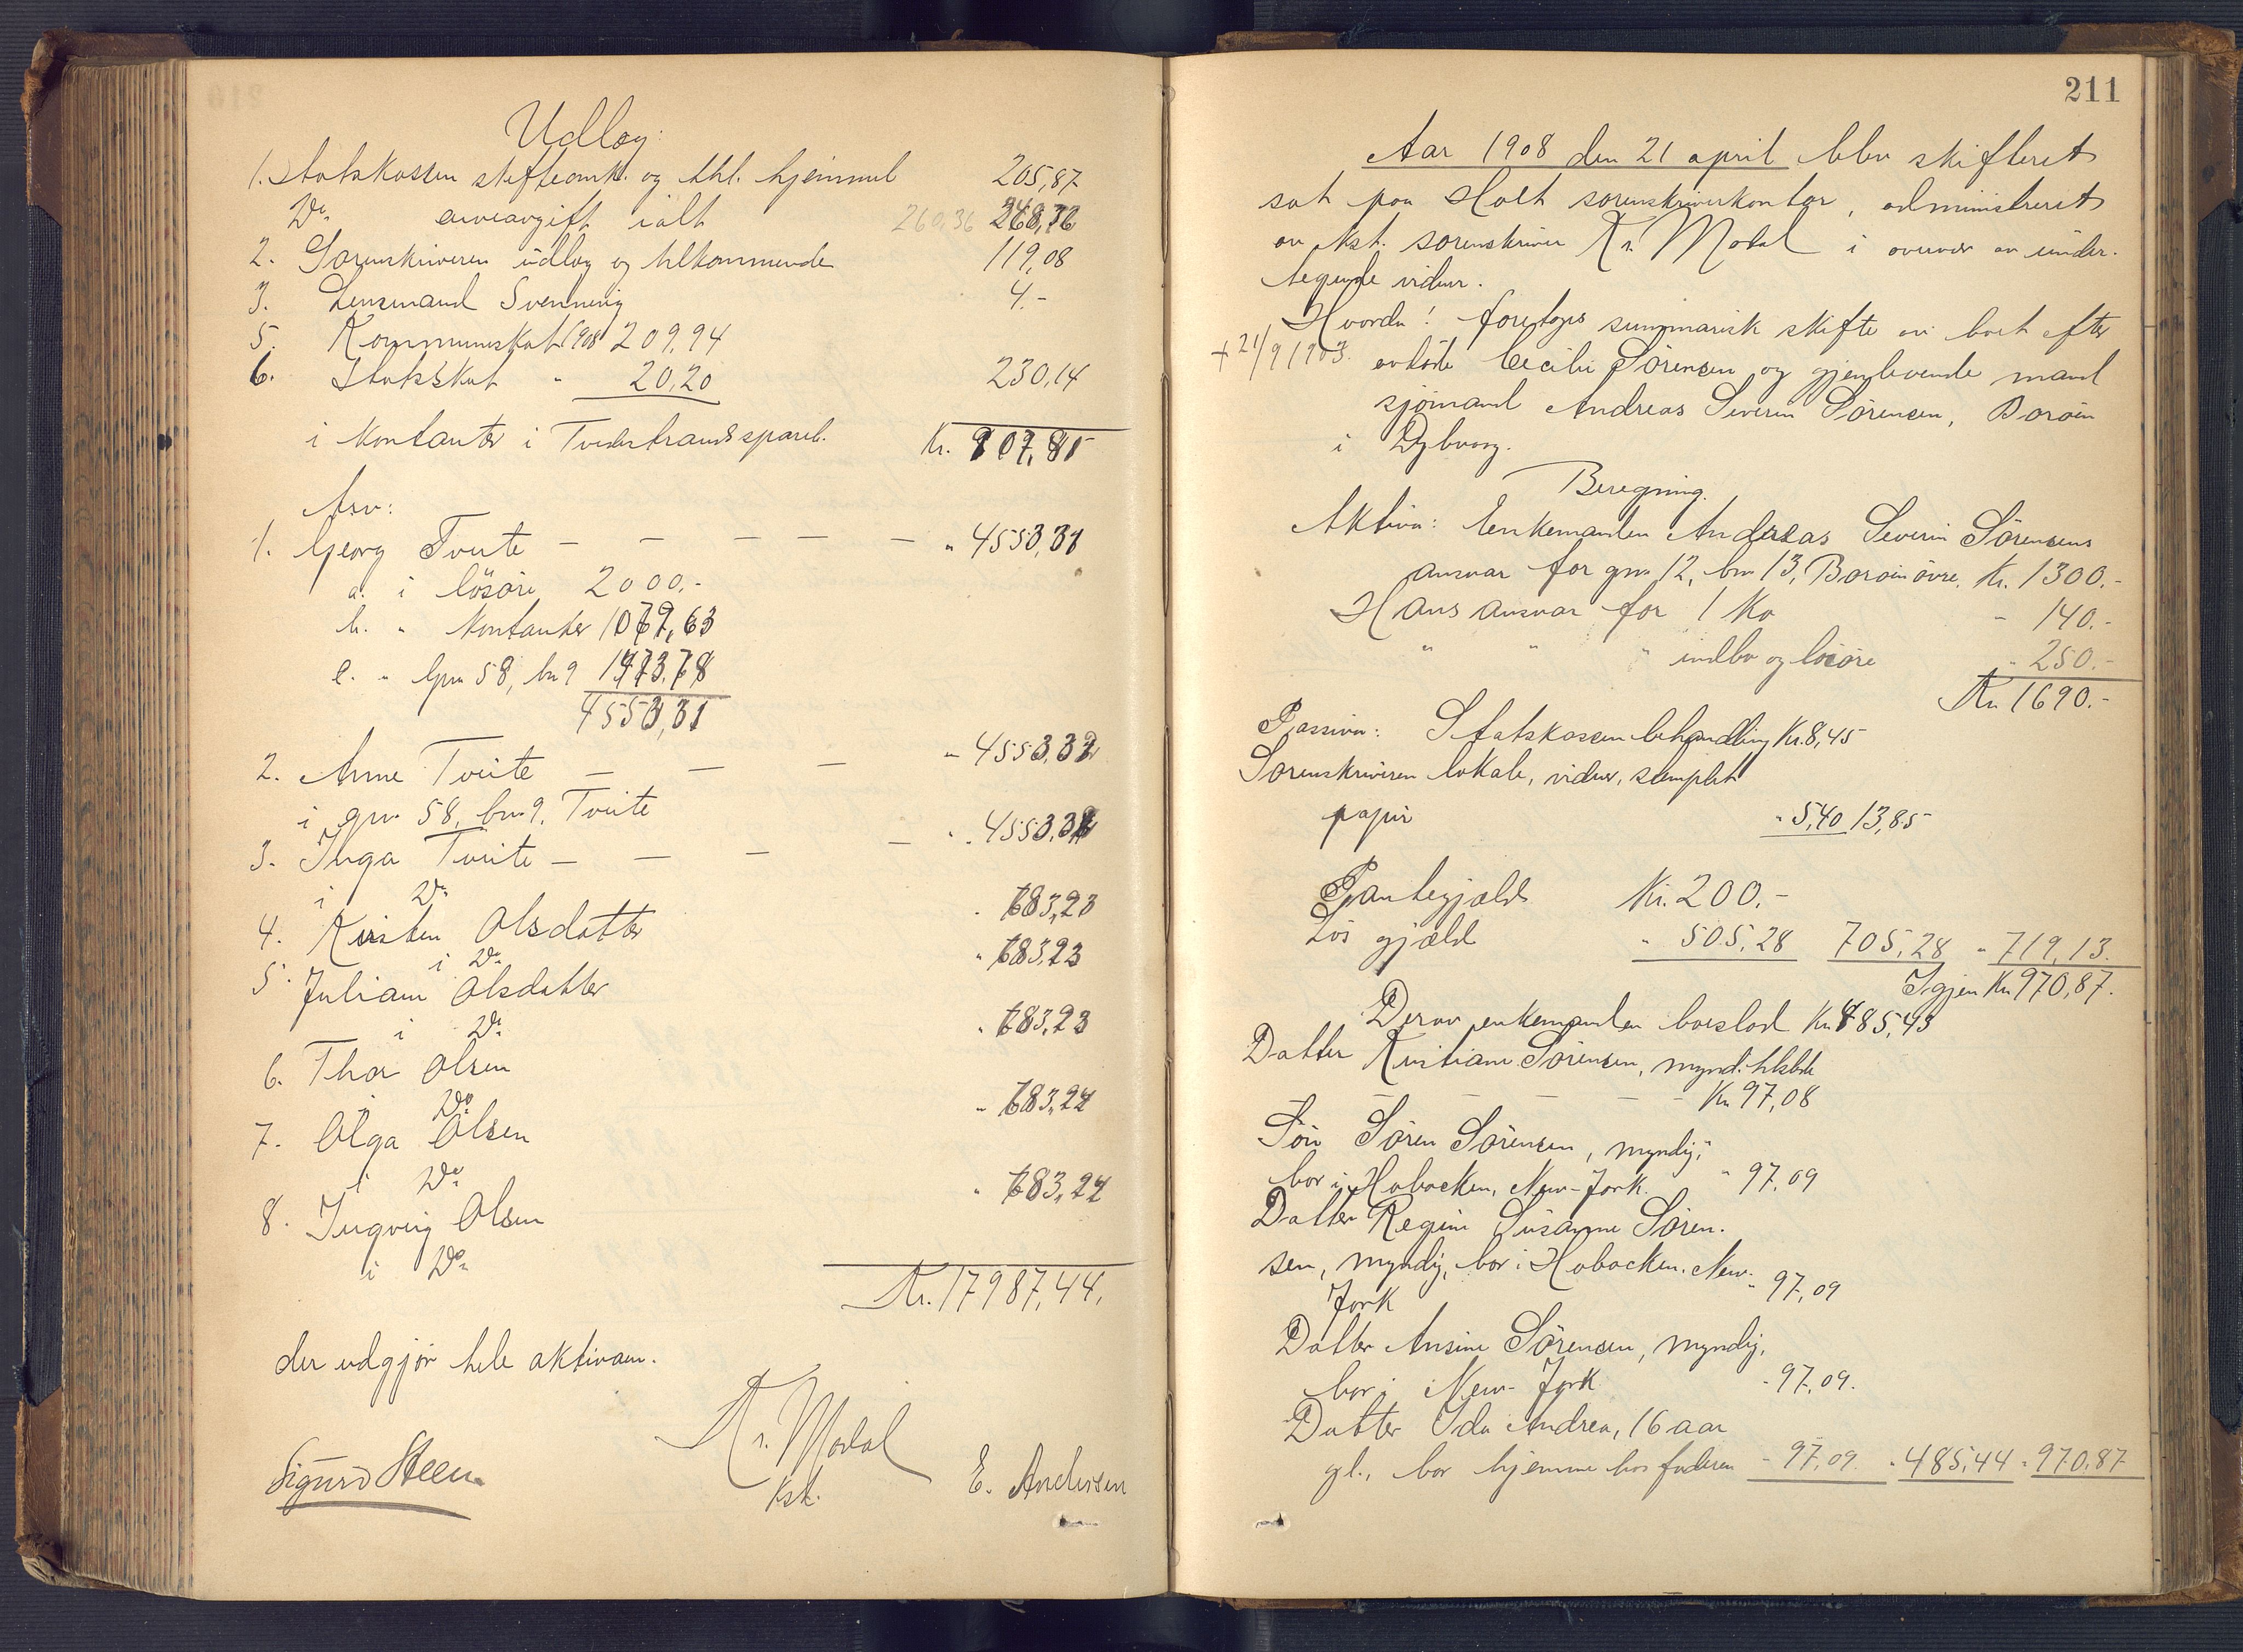 Udlæg:
1. Statskassen skifteomk. og thl. hjemmel 205,87
Do arveavgift ialt 260,36 248,76
2. Sorenskriveren udlæg og tilkommende 119,08
3. Lensmand Svenning 4.-
5. Kommuneskat 1908 209,94
6. Statsskat " 20,20 230,14
i kontanter i Tvedestrands spareb. Kr. 807,85
Arv:
1. Georg Tveite — — — — — " 4553,31
a. i lösöre 2000.-
b. " kontanter 1079,63
c. " Gpn 58, bn 9 1473,68
4553,31
2. Anne Tveite — — — " 4553,32
i gn. 58, bn. 9, Tveite
3. Inga Tveite — — — — " 4553,32
i Do
4. Kirsten Olsdatter " 683,23
i Do
5. Juliane Olsdatter " 683,23
i Do
6. Thor Olsen " 683,23
i Do
7. Olga Olsen " 683,24
i Do
8. Ingvrig Olsen " 683,24
i Do
Kr. 17987,44.
der udgjör hele aktivaen.
Kr. Modal
Kst.
Sigurd Steen
E. Andersen
211
Aar 1908 den 21 april blev skifteret
sat paa Holt sorenskriverkontor, administreret
av kst. sorenskriver Kr. Modal i overvær av under-
tegnede vidner.
Hvorda! foretoges summarisk skifte av boet efter
+ 21/9 1903. avdöde Cecilie Sörensen og gjenlevende mand
sjömand Andreas Severin Sörensen, Boröen
i Dybvaag.
Beregning.
Aktiva: Enkemanden Andreas Severin Sörensens
ansvar for gn. 12, bn. 13, Boröen övre. Kr. 1300.-
Hans ansvar for 1 ko " 140.-
" " " indbo og lösöre " 250.-
Kr. 1690.-
Passiva: Statskassen behandling Kr. 8,45
Sorenskriveren lokale, vidner, stemplet
papir " 5,40 13,85
Pantegjæld Kr. 200.-
Lös gjæld " 505,28 705,28 " 719,13.
Igjen Kr. 970,87.
Derav enkemanden boeslod Kr. 485,43
Datter Kristiane Sörensen, mynd. tilstede
— — — — — Kr. 97,08
Sön Sören Sörensen, myndig,
bor i Hobocken, New-Jork. " 97,09
Datter Regine Susanne Sören-
sen, myndig, bor i Hobocken. New-
Jork " 97,09
Datter Ansine Sörensen, myndig,
bor i New-Jork " 97,09.
Datter Ida Andrea, 16 aar
gl., bor hjemme hos faderen " 97,09. " 485,44 " 970,87